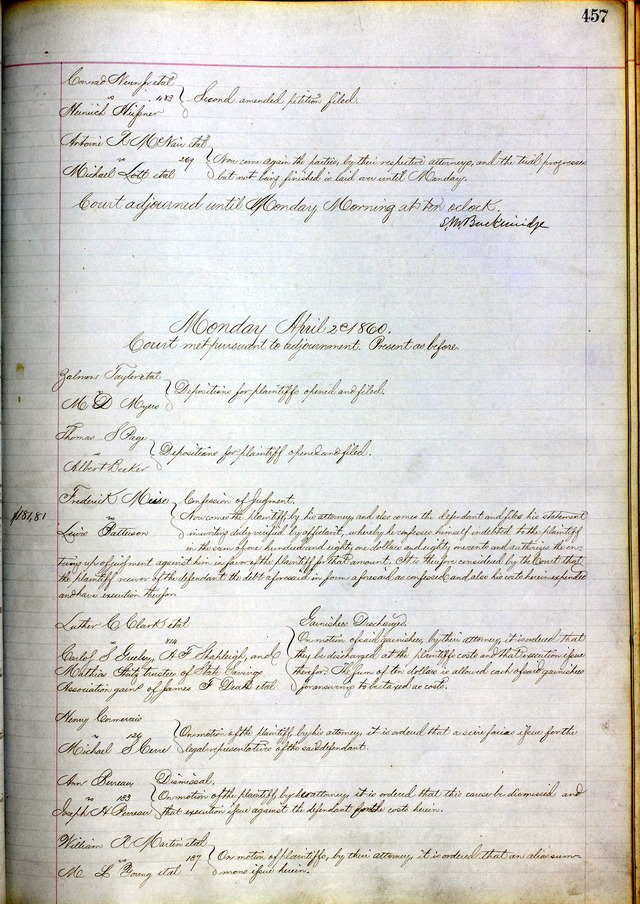 457
Conrad et al
vs 483 } Second amended petition filed.
Heinrich
Antoine R McNair et al
vs 269 } Now come again the parties, by their respective attorneys, and the trial progresses
Michael Lott et al but not being finished is laid over until Monday.
Court adjourned until Monday Morning at ten oclock.
S. M. Breckinridge
Monday April 2d 1860.
Court met pursuant to adjournment. Present as before.
Zalman Taylor et al
vs } Depositions for plaintiffs opened and filed.
M D Myers
Thomas S Page
vs } Depositions for plaintiff opened and filed.
Albert Becker
Frederick Confession of Judgment.
$181,81 vs Now comes the plaintiff by his attorney and also comes the defendant and files his statement
Lewis Pattison in writing duly verified by affidavit, whereby he confesses himself indebted to the plaintiff
in the sum of one hundred and eighty one dollars and eighty one cents and authorizes the en-
tring up of judgment against him in favor of the plaintiff for that amount. It is therefore considered by the Court that
the plaintiff recover of the defendant the debt aforesaid in form aforesaid as confessed and also his costs herein expended
and have execution therefor.
Luther C Clark et al Garnishees Discharged.
vs 814 On motion of said garnishees, by their attorney, it is ordered that
Carlos S Greeley, A F Shapleigh, and they be discharged at the plaintiffs costs and that execution issue
trustees of State Savings therefor. The sum of ten dollars is allowed each of said garnishees
Association garns of James F et al for answering to be taxed as costs.
Henry
vs 129 } On motion of the plaintiff, by his attorney, it is ordered that a scire facias issue for the
Michael S Cerre legal representatives of the said defendant.
Ann Perreau Dismissal.
vs 183 } On motion of the plaintiff, by her attorney, it is ordered that this cause be dismissed and
Joseph H Perreau that execution issue against the defendant for the costs herein.
William R Martin et al
vs 187 } On motion of plaintiffs, by their attorney, it is ordered that an alias sum-
M L Young et al mons issue herein.